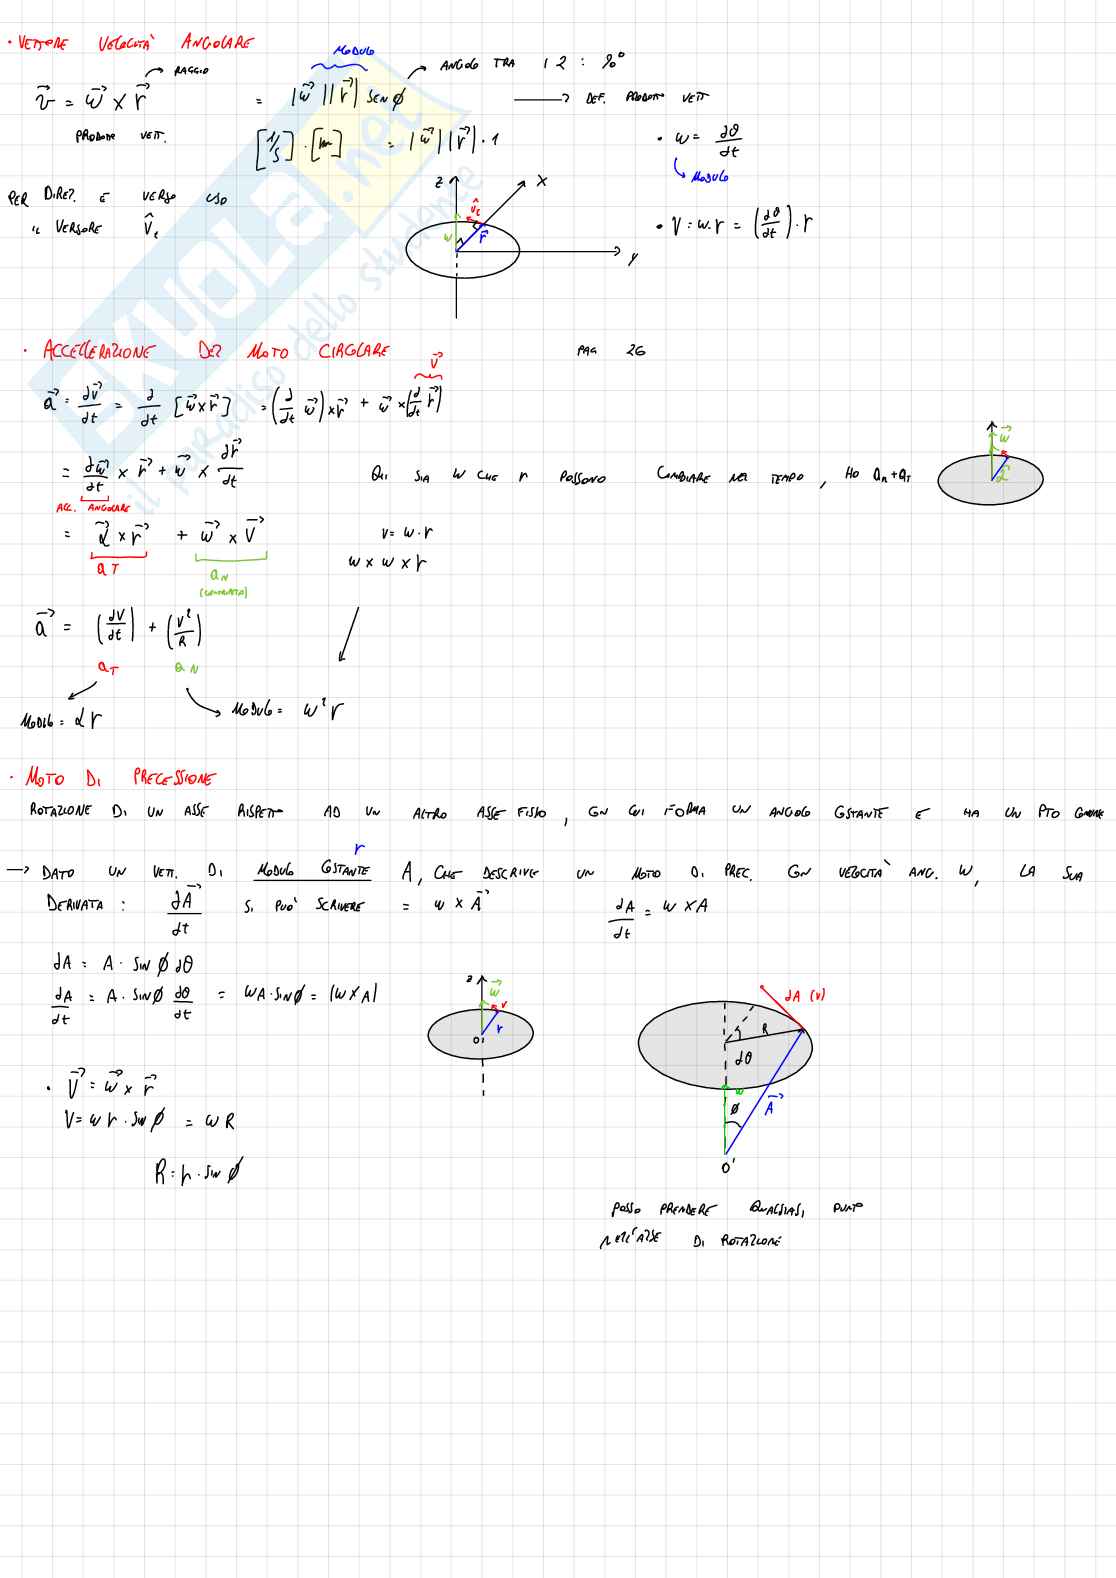 · VETTORE VELOCITÀ ANGOLARE
MODULO
RAGGIO
ANGOLO TRA I 2 : 90°
v⃗ = ω⃗ × r⃗ = |ω⃗||r⃗| SEN ϕ → DEF. PRODOTTO VETT
PRODOTTO VETT. [1/s]·[m] = |ω⃗||r⃗|·1
• ω = dθ/dt
MODULO
PER DIREZ. E VERSO USO
IL VERSORE v̂t
• V = ω·r = (dθ/dt)·r
z x v̂t ω r⃗ y
· ACCELLERAZIONE DEL MOTO CIRCOLARE PAG 26
v⃗
a⃗ = dv⃗/dt = d/dt [ω⃗×r⃗] = (d/dt ω⃗)×r⃗ + ω⃗×(d/dt r⃗)
= dω⃗/dt × r⃗ + ω⃗ × dr⃗/dt
QUI SIA ω CHE r POSSONO CAMBIARE NEL TEMPO, HO aN+aT
ACC. ANGOLARE
= α⃗ × r⃗ + ω⃗ × v⃗
aT
aN
(CENTRIPETA)
v = ω·r
ω × ω × r
ω⃗
a⃗ = (dv/dt) + (v²/R)
aT aN
MODULO = αr
MODULO = ω²r
· MOTO DI PRECESSIONE
ROTAZIONE DI UN ASSE RISPETTO AD UN ALTRO ASSE FISSO, CON CUI FORMA UN ANGOLO COSTANTE E HA UN PTO COMUNE
r
→ DATO UN VETT. DI MODULO COSTANTE A, CHE DESCRIVE UN MOTO DI PREC. CON VELOCITÀ ANG. ω, LA SUA
DERIVATA : dA⃗/dt SI PUÒ SCRIVERE = ω × A⃗ dA/dt = ω × A
dA = A · SIN ϕ dθ
dA/dt = A · SIN ϕ dθ/dt = ωA·SIN ϕ = |ω×A|
z ω⃗ v r O
dA (v)
R
dθ
ω
ϕ A⃗
O'
· v⃗ = ω⃗ × r⃗
V = ω r · SIN ϕ = ωR
R = r · SIN ϕ
POSSO PRENDERE QUALSIASI PUNTO
NELL'ASSE DI ROTAZIONE
SKUOLA.net
il paradiso dello studente